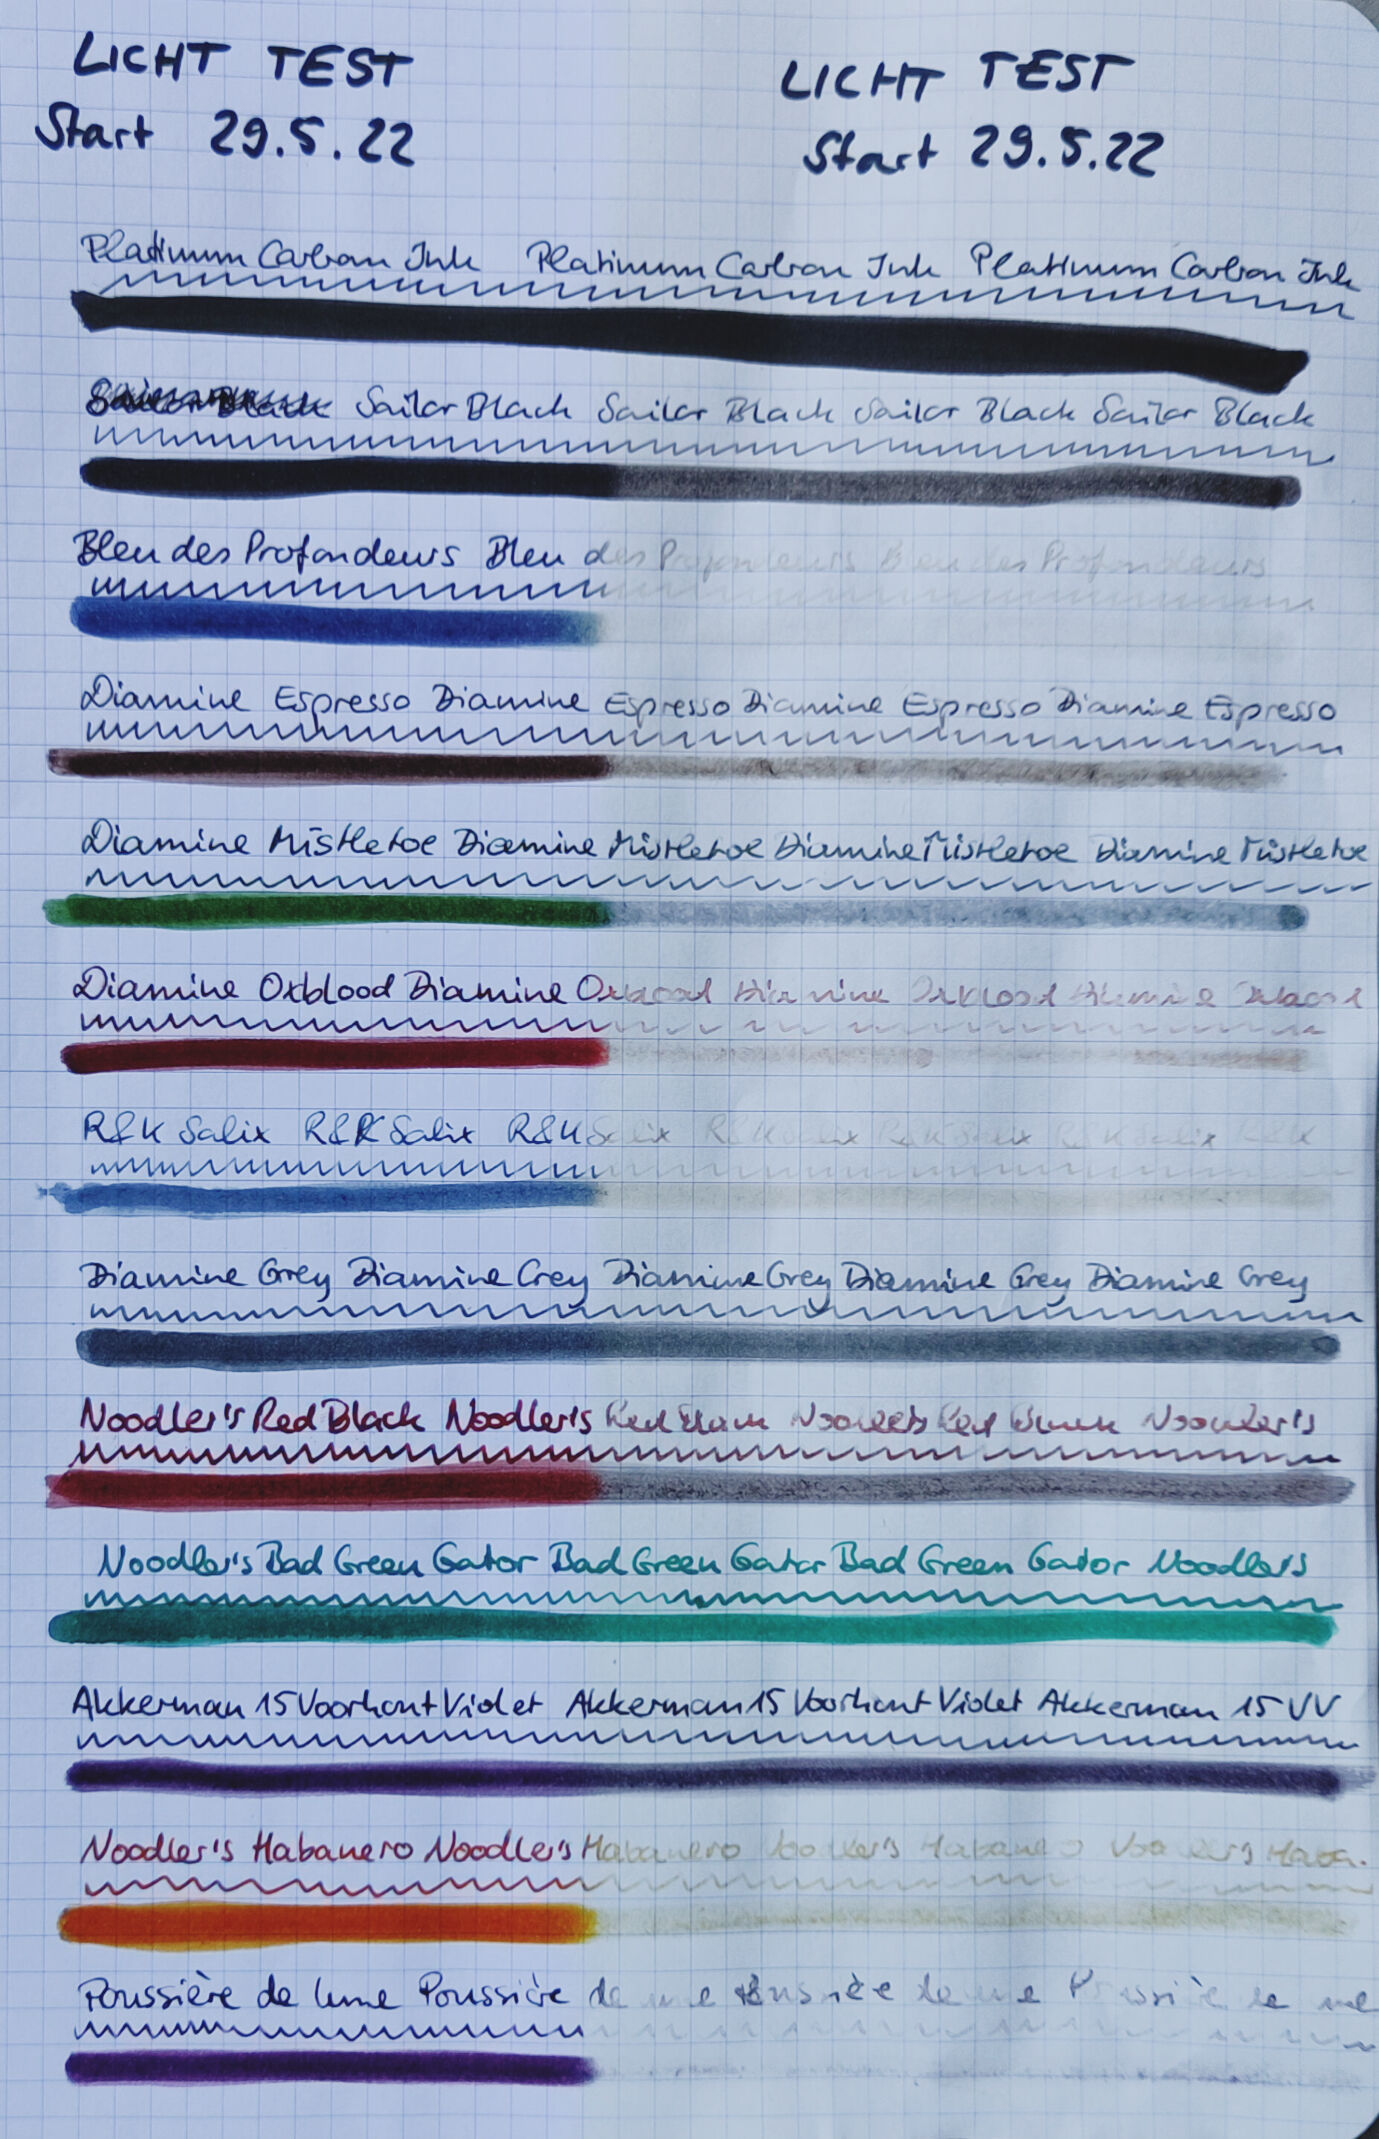 LICHT TEST LICHT TEST
Start 29.5.22 Start 29.5.22
Platinum Carbon Ink Platinum Carbon Ink Platinum Carbon Ink
Sailor Black Sailor Black Sailor Black Sailor Black Sailor Black
Bleu des Profondeurs Bleu des Profondeurs Bleu des Profondeurs
Diamine Espresso Diamine Espresso Diamine Espresso Diamine Espresso
Diamine Mistletoe Diamine Mistletoe Diamine Mistletoe Diamine Mistletoe
Diamine Oxblood Diamine Oxblood Diamine Oxblood Diamine Oxblood
R&K Salix R&K Salix R&K Salix R&K Salix R&K Salix R&K Salix R&K
Diamine Grey Diamine Grey Diamine Grey Diamine Grey Diamine Grey
Noodler's Red Black Noodler's Red Black Noodler's Red Black Noodler's
Noodler's Bad Green Gator Bad Green Gator Bad Green Gator Noodlers
Akkerman 15 Voorhout Violet Akkerman 15 Voorhout Violet Akkerman 15 VV
Noodler's Habanero Noodler's Habanero Noodler's Habanero Noodler's Haba.
Poussière de lune Poussière de lune Poussière de lune Poussière de lune